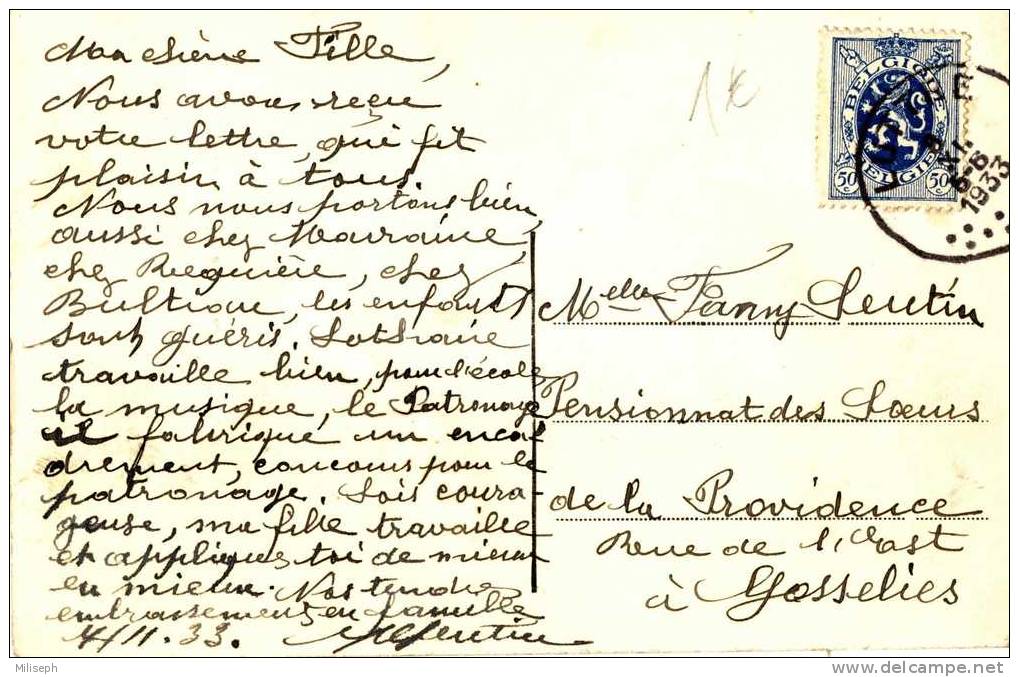 Ma chère Fille,
Nous avons reçu
votre lettre, qui fit
plaisir à tous.
Nous nous portons bien,
aussi chez Marraine,
chez Requière, chez
Bultique, les enfants
sont guéris. Lothaire
travaille bien, pour l'école
la musique, le Patronage
il fabrique un enca-
drement, concours pour le
patronage. Sois coura-
geuse, ma fille travaille
et appliques toi de mieux
en mieux. Nos tendres
embrassements en famille
4/11.33.
1€
BELGIQUE
BELGIE
50 c
50 c
1933
Melle Fanny Sentin
Pensionnat des Soeurs
de la Providence
Rue de l'Est
à Gosselies
Miliseph
www.delcampe.net